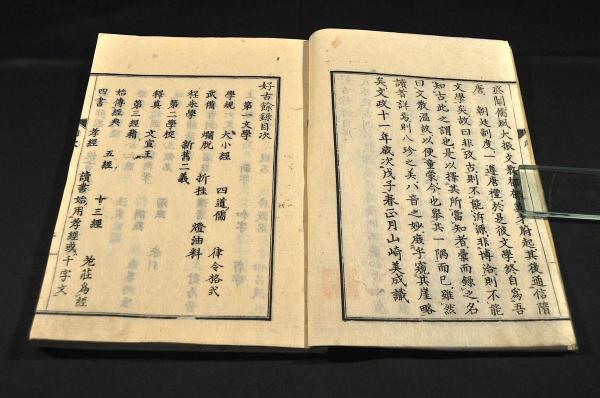 聞儒風大振文教 才蔚起其後通信隋
唐 朝廷制度一遵唐禮於是彼文學終自爲吾
文學矣故曰非攷古則不能泝源非博洽則不能
知古此之謂也是以擇其所當知者彙而錄之名
曰文教溫故以便童蒙今也舉其一隅而已雖然
讀者詳焉則八珍之美八音之妙庶乎窺其崖略
矣文政十一年歲次戊子春正月山崎美成識
好古餘錄目次
第一文學
學規 大小經 四道儒 律令格式
武備 爛脫 折挂 燈油料
程朱學 新舊二義
第二學校
釋奠 文宣王
第三經籍
始傳經典 五經 十三經 老莊爲經
四書 孝經 讀書始用孝經或千字文